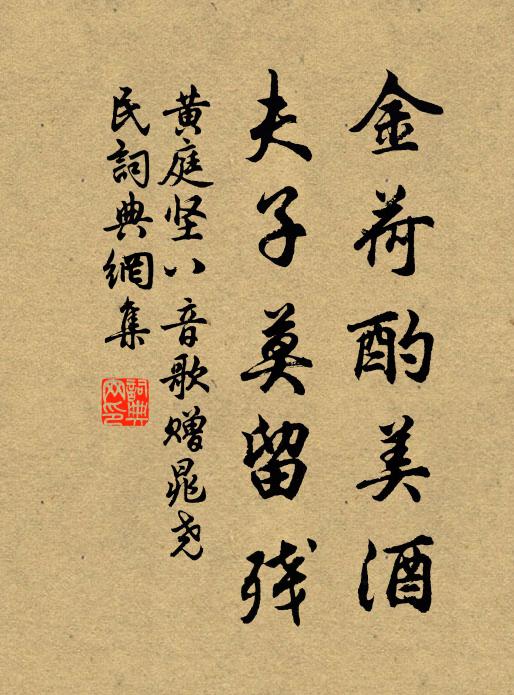 金荷酌美酒
夫子莫留残
黄庭坚八音歌赠晁尧
民詞典網集
詞典網印